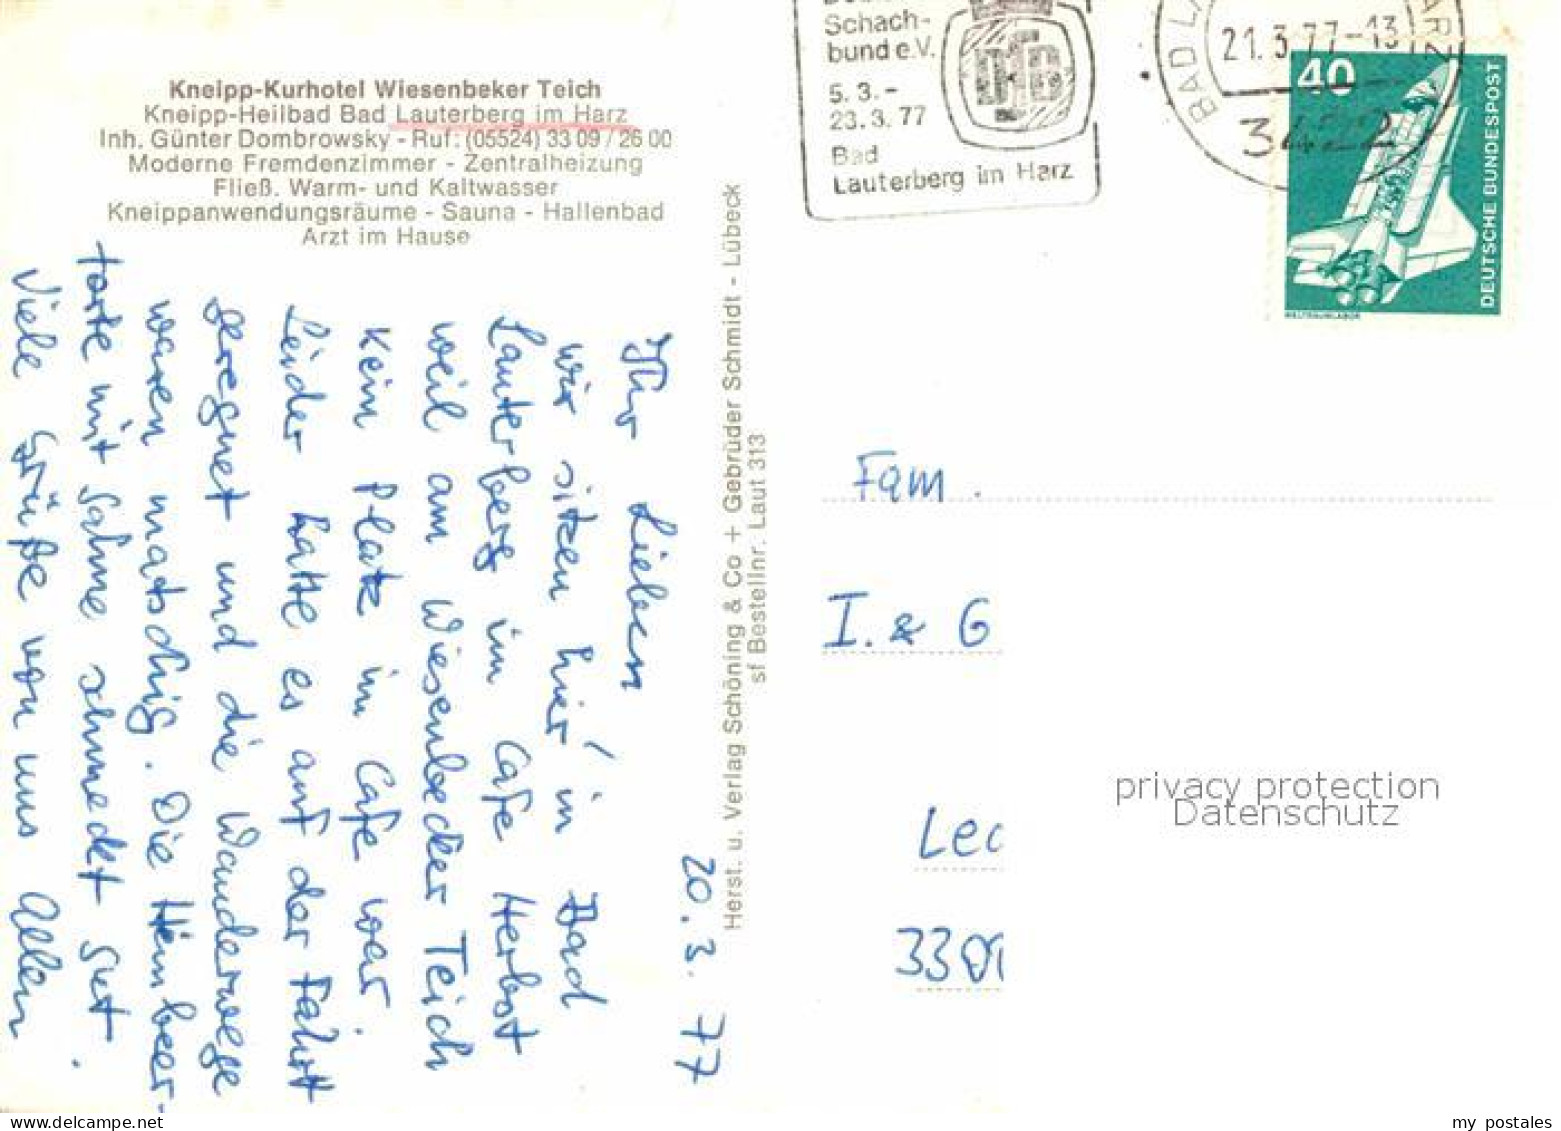 Kneipp-Kurhotel Wiesenbeker Teich
Kneipp-Heilbad Bad Lauterberg im Harz
Inh. Günter Dombrowsky - Ruf: (05524) 33 09 / 26 00
Moderne Fremdenzimmer - Zentralheizung
Fließ. Warm- und Kaltwasser
Kneippanwendungsräume - Sauna - Hallenbad
Arzt im Hause
20. 3. 77
Ihr Lieben
wir sitzen hier in Bad
Lauterberg im Cafe Herbst
weil am Wiesenbecker Teich
kein Platz im Cafe war.
Leider hatte es auf der Fahrt
geregnet und die Wanderwege
waren matschig. Die Himbeer-
torte mit Sahne schmeckt gut.
Viele Grüße von uns Allen
Herst. u. Verlag Schöning & Co + Gebrüder Schmidt - Lübeck
sf Bestellnr. Laut 313
Schach-
bund e.V.
5. 3. -
23. 3. 77
Bad
Lauterberg im Harz
BAD LA
ARZ
21.3.77-13
3422
40
DEUTSCHE BUNDESPOST
WELTRAUMLABOR
Fam.
I. & G
Lec
330
privacy protection
Datenschutz
my postales